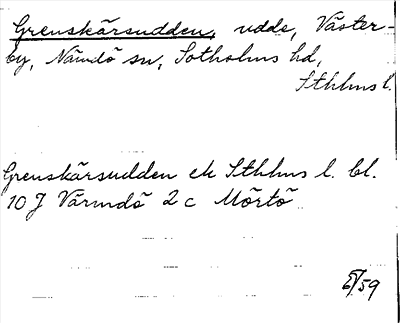 Grenskärsudden, udde, Väster-
by, Nämdö sn, Sotholms hd,
Sthlms l.
Grenskärsudden ek Sthlms l. bl.
10 J Värmdö 2 c Mörtö
5/59